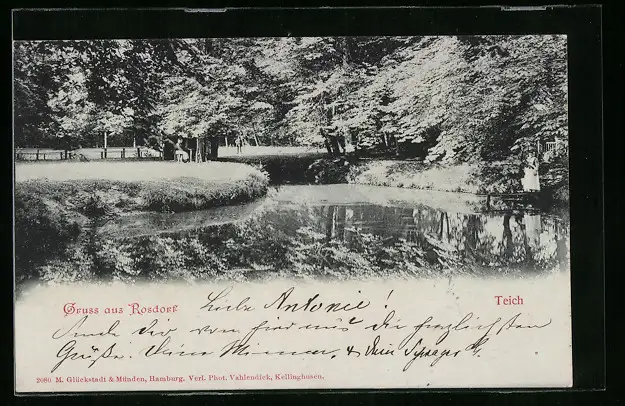 Gruss aus Rosdorf
Teich
Liebe Antonie!
Auch Dir von hier aus die herzlichsten
Grüße. Deine & Dein
2080 M. Glückstadt & Münden, Hamburg. Verl. Phot. Vahlendick, Kellinghusen.